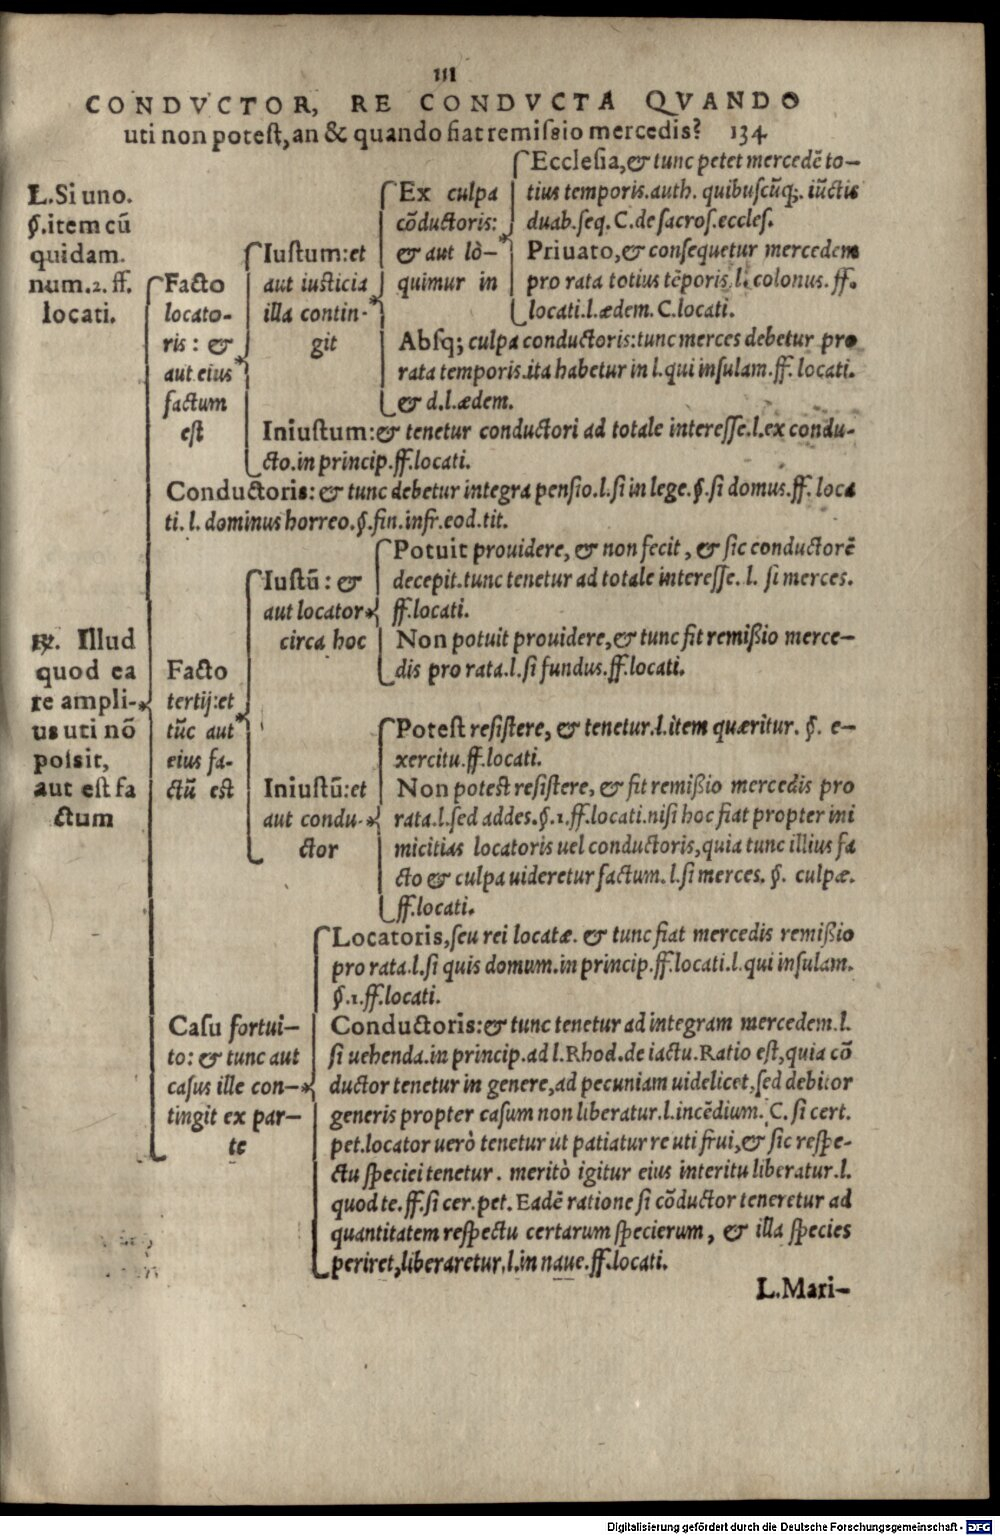 III
CONDVCTOR, RE CONDVCTA QVANDO
uti non potest, an & quando fiat remissio mercedis? 134
L. Si uno.
§. item cū
quidam.
num. 2. ff.
locati.
℞. Illud
quod ea
re ampli-
us uti nō
possit,
aut est fa
ctum
Facto
locato-
ris: &
aut eius
factum
est
Iustum: et
aut iusticia
illa contin-
git
Ex culpa
cōductoris:
& aut lò-
quimur in
Ecclesia, & tunc petet mercedē to-
tius temporis. auth. quibuscūq;. iūctis
duab. seq. C. de sacros. eccles.
Priuato, & consequetur mercedem
pro rata totius tēporis. l. colonus. ff.
locati. l. ædem. C. locati.
Absq; culpa conductoris: tunc merces debetur pro
rata temporis. ita habetur in l. qui insulam. ff. locati.
& d. l. ædem.
Iniustum: & tenetur conductori ad totale interesse. l. ex condu-
cto. in princip. ff. locati.
Conductoris: & tunc debetur integra pensio. l. si in lege. §. si domus. ff. loca
ti. l. dominus horreo. §. fin. infr. eod. tit.
Facto
tertij: et
tūc aut
eius fa-
ctū est
Iustū: &
aut locator
circa hoc
Potuit prouidere, & non fecit, & sic conductorē
decepit. tunc tenetur ad totale interesse. l. si merces.
ff. locati.
Non potuit prouidere, & tunc fit remissio merce-
dis pro rata. l. si fundus. ff. locati.
Iniustū: et
aut condu-
ctor
Potest resistere, & tenetur. l. item quæritur. §. e-
xercitu. ff. locati.
Non potest resistere, & fit remissio mercedis pro
rata. l. sed addes. §. 1. ff. locati. nisi hoc fiat propter ini
micitias locatoris uel conductoris, quia tunc illius fa
cto & culpa uideretur factum. l. si merces. §. culpæ.
ff. locati.
Casu fortui-
to: & tunc aut
casus ille con-
tingit ex par-
te
Locatoris, seu rei locatæ. & tunc fiat mercedis remissio
pro rata. l. si quis domum. in princip. ff. locati. l. qui insulam.
§. 1. ff. locati.
Conductoris: & tunc tenetur ad integram mercedem. l.
si uehenda. in princip. ad l. Rhod. de iactu. Ratio est, quia cō
ductor tenetur in genere, ad pecuniam uidelicet, sed debitor
generis propter casum non liberatur. l. incēdium. C. si cert.
pet. locator uerò tenetur ut patiatur re uti frui, & sic respe-
ctu speciei tenetur. meritò igitur eius interitu liberatur. l.
quod te. ff. si cer. pet. Eadē ratione si cōductor teneretur ad
quantitatem respectu certarum specierum, & illa species
periret, liberaretur. l. in naue. ff. locati.
L. Mari-
Digitalisierung gefördert durch die Deutsche Forschungsgemeinschaft - DFG